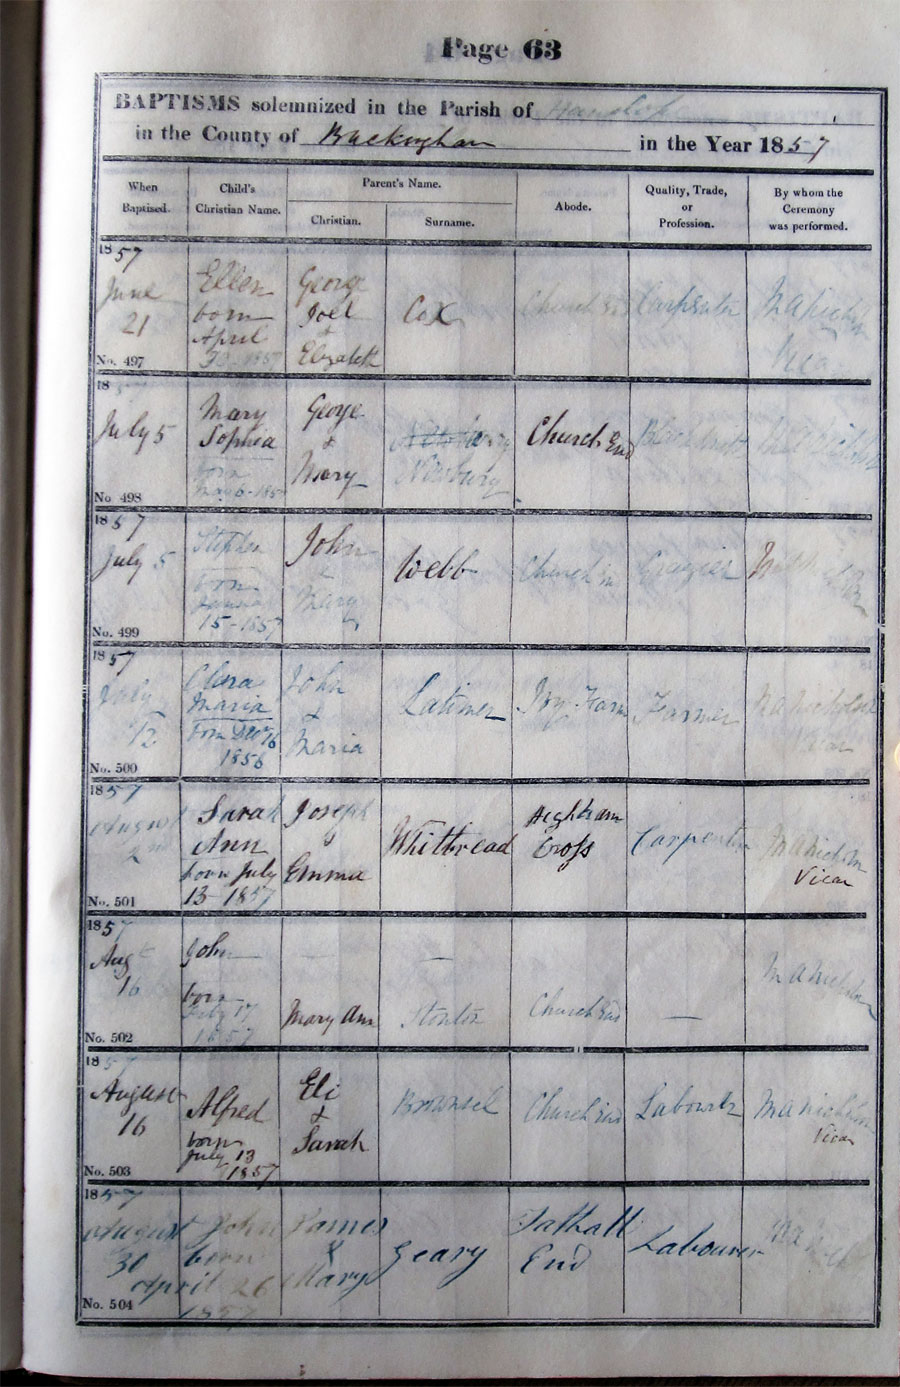 Page 63
BAPTISMS solemnized in the Parish of Hanslope
in the County of Buckingham in the Year 1857
When
Baptised.
Child's
Christian Name.
Parent's Name.
Christian.
Surname.
Abode.
Quality, Trade,
or
Profession.
By whom the
Ceremony
was performed.
1857
June
21
No. 497
Ellen
born
April
1857
George
Joel
&
Elizabeth
Cox
Church End
Carpenter
18
July 5
No 498
Mary
Sophia
born
May 6-1857
George
&
Mary
Newbury
Church End
Blacksmith
1857
July 5
No. 499
Stephen
born
15-1857
John
&
Mary
Webb
Church
Grazier
1857
July
12
No. 500
Clara
Maria
born Dec 16
1856
John
&
Maria
Latimer
Ivy Farm
Farmer
Vicar
1857
August
2nd
No. 501
Sarah
Ann
born July
13-1857
Joseph
&
Emma
Whitbread
Higham
Cross
Carpenter
Vicar
1857
Aug
16
No. 502
John
born
July 17
1857
—
Mary Ann
—
Church End
—
1857
August
16
No. 503
Alfred
born
July 13
1857
Eli
&
Sarah
Church End
Labourer
Vicar
1857
August
30
No. 504
John
born
April 26
1857
James
&
Mary
Geary
Tathall
End
Labourer